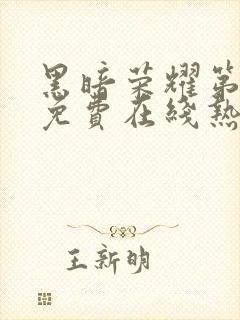 黑暗荣耀第
免費在綫熱
王新明